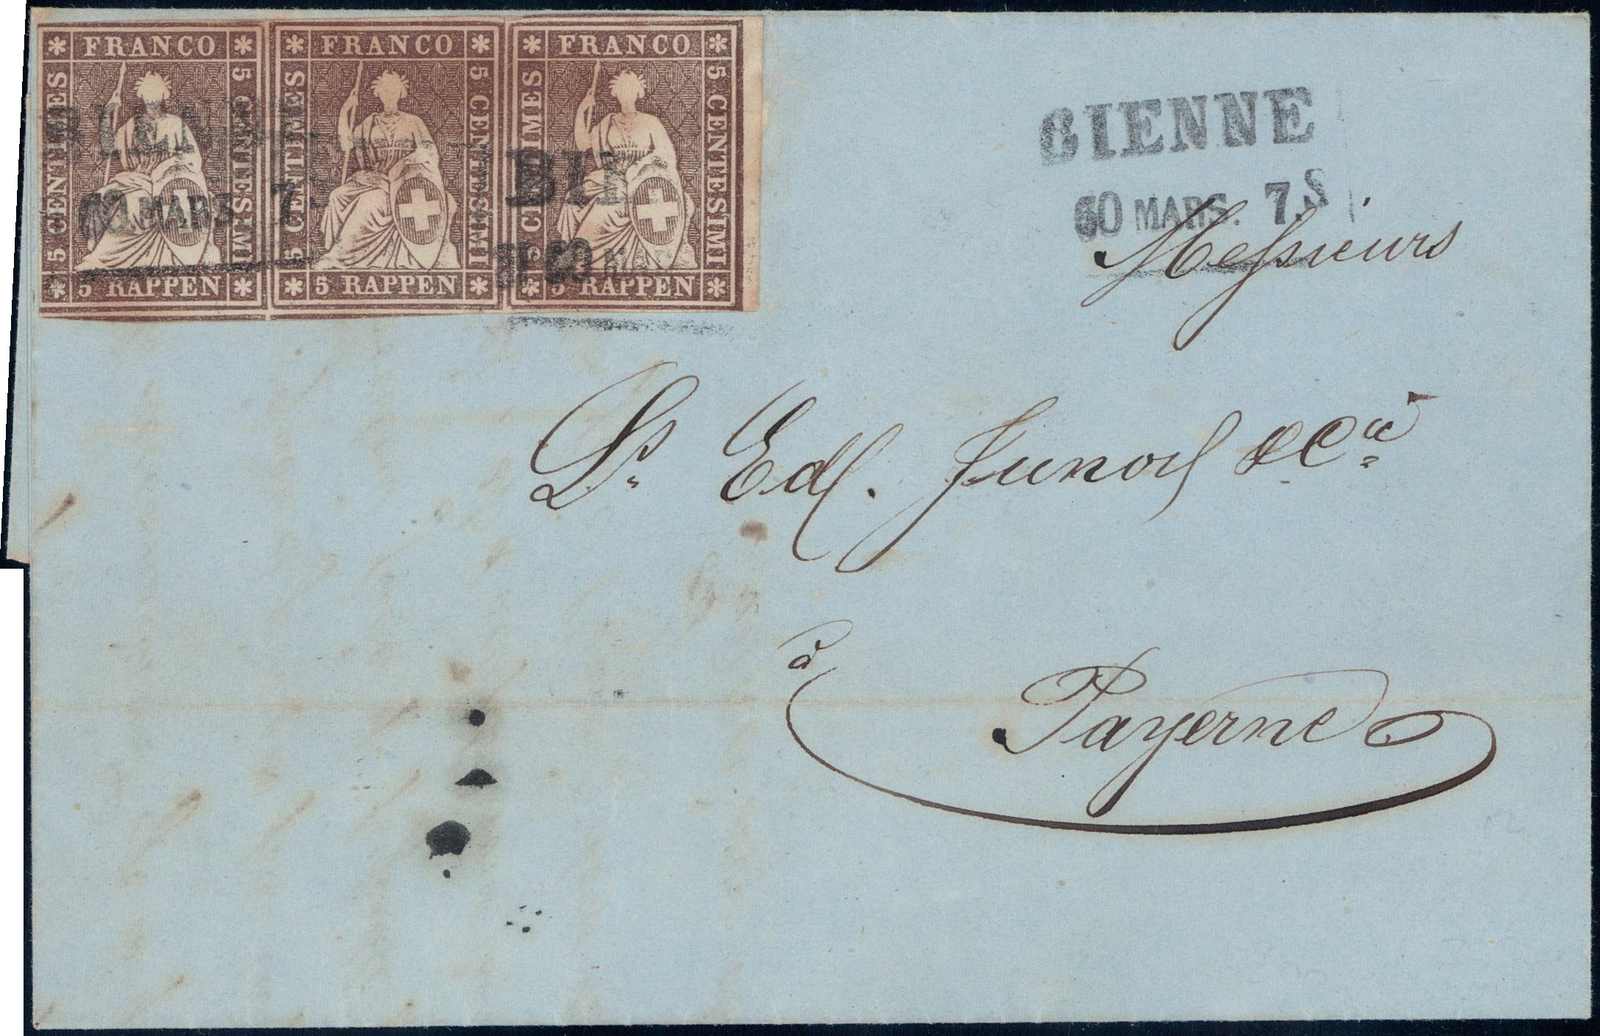 FRANCO FRANCO FRANCO
5 CENTIMES 5 CENTIMES 5 CENTIMES
5 CENTESIMI 5 CENTESIMI 5 CENTESIMI
5 RAPPEN 5 RAPPEN 5 RAPPEN
BIENNE
60 MARS. 7
BIE
BIENNE
60 MARS. 7 S
Messieurs
Ls Ed. Junod & Cie
à
Payerne